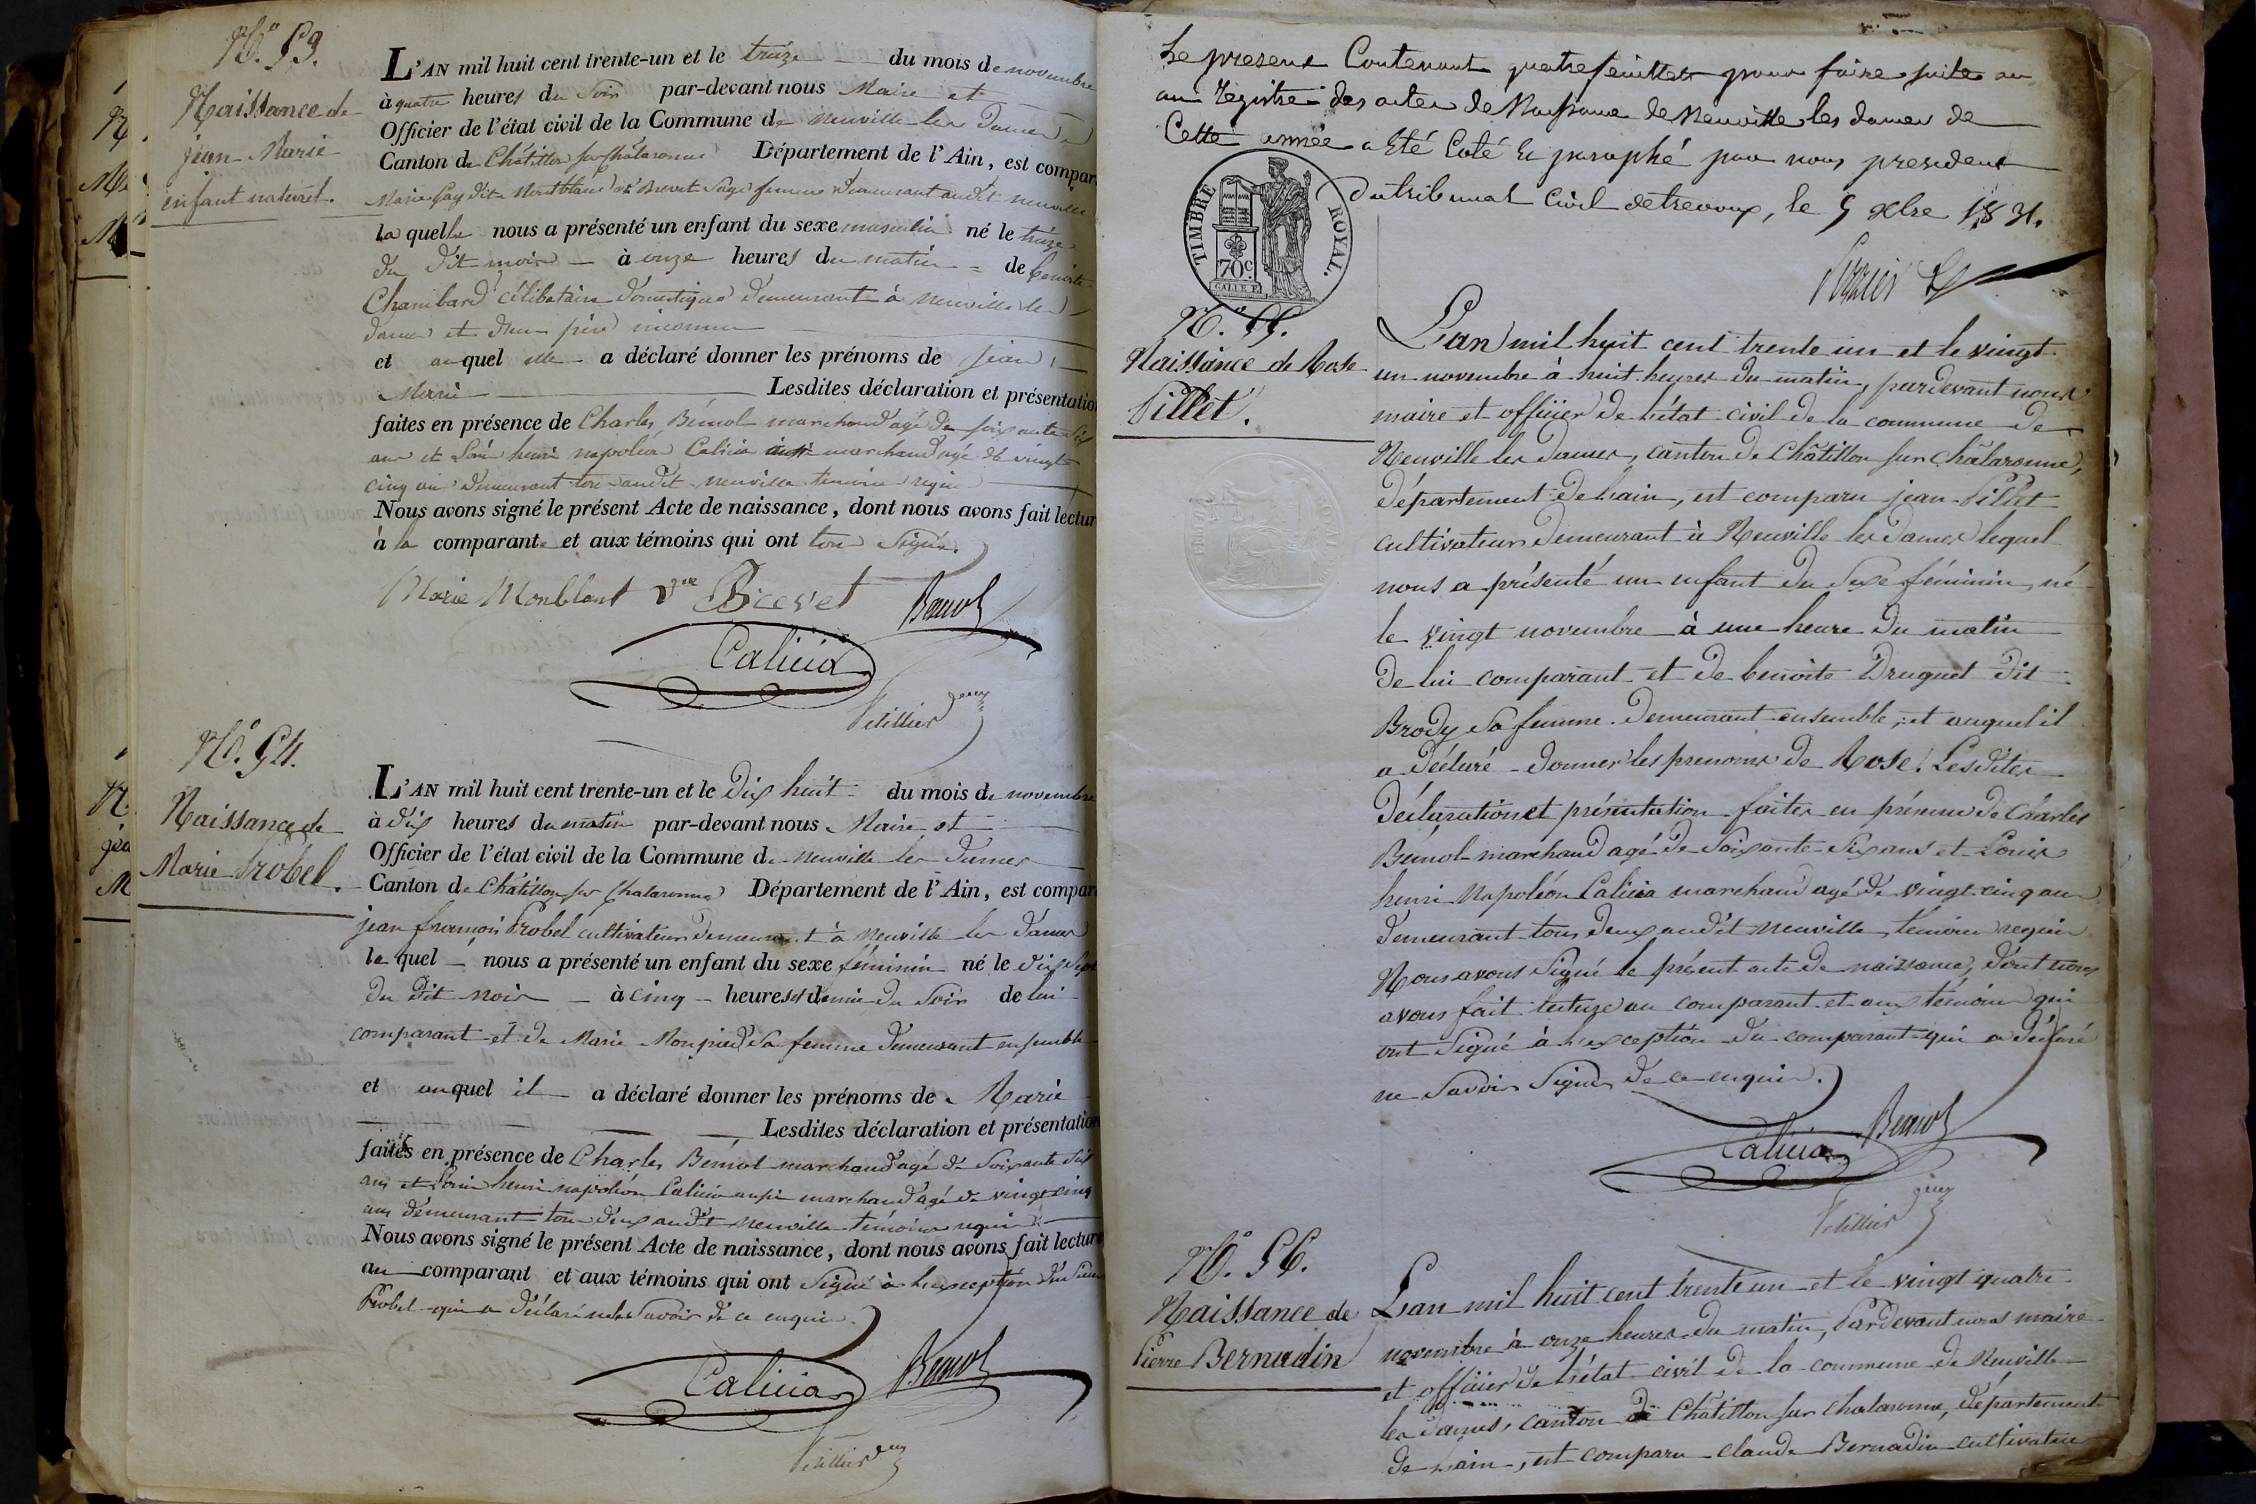 N.º 53.
Naissance de
jean-Marie
enfant naturel.
L'AN mil huit cent trente-un et le treize du mois de novembre
à quatre heures du soir par-devant nous Maire et
Officier de l'état civil de la Commune de neuville les Dames
Canton de Châtillon sur Chalaronne Département de l'Ain, est compar
Marie Gay dit Montblanc vᵉ Brevet Sage femme demeurant audit neuville
la quelle nous a présenté un enfant du sexe masculin né le treize
du dit mois à onze heures du matin de benoite
Chambard célibataire domestique demeurant à neuville les
dames et d'un père inconnu
et auquel elle a déclaré donner les prénoms de jean
Marie Lesdites déclaration et présentation
faites en présence de Charles Bémol marchand agé de soixante six
ans et Louis henri napoléon Calicia aussi marchand agé de vingt
cinq ans demeurant tous audit neuville témoins requis
Nous avons signé le présent Acte de naissance, dont nous avons fait lectur
à la comparante et aux témoins qui ont tous signé.
Marie Monblant vᵛᵉ Brevet Bemol
Calicia
N.º 54.
Naissance de
Marie Probel.
L'AN mil huit cent trente-un et le dix huit du mois de novembre
à dix heures du matin par-devant nous Maire et
Officier de l'état civil de la Commune de neuville les Dames
Canton de Châtillon sur Chalaronne Département de l'Ain, est compar
jean françois Probel cultivateur demeurant à neuville les dames
le quel nous a présenté un enfant du sexe féminin né le dix sept
du dit mois à cinq heures et demie du soir de lui
comparant et de Marie Monpied sa femme demeurant ensemble
et auquel il a déclaré donner les prénoms de Marie
Lesdites déclaration et présentation
faites en présence de Charles Bémol marchand agé de soixante six
ans et Louis henri napoléon Calicia aussi marchand agé de vingt cinq
ans demeurant tous deux audit neuville témoins requis
Nous avons signé le présent Acte de naissance, dont nous avons fait lecture
au comparant et aux témoins qui ont signé à l'exception du sieur
Probel qui a déclaré ne le savoir de ce enquis.
Calicia Bemol
Le present Contenant quatre feuillets pour faire suite au
au registre des actes de Naissance de Neuville les dames de
Cette année a Eté Coté Et paraphé par nous president
du tribunal Civil de trevoux, le 9 xbre 1831.
TIMBRE ROYAL.
70c
N.º 55.
Naissance de Rose
Pillet.
L'an mil huit cent trente un et le vingt
un novembre à huit heures du matin, pardevant nous
maire et officier de l'état civil de la commune de
Neuville les dames, canton de Châtillon sur Chalaronne,
département de l'ain, est comparu jean Pillet
cultivateur demeurant à Neuville les dames lequel
nous a présenté un enfant du sexe féminin, né
le vingt novembre à une heure du matin
de lui comparant et de benoite Druguet dit
Brody sa femme demeurant ensemble, et auquel il
a déclaré donner les prenoms de Rose. Lesdites
déclaration et présentation faites en présence de Charles
Bémol marchand agé de soixante six ans et Louis
henri Napoléon Calicia marchand agé de vingt cinq ans
demeurant tous deux audit neuville, témoins requis
Nous avons signé le présent acte de naissance, dont nous
avons fait lecture au comparant et aux témoins qui
ont signé à l'exception du comparant qui a déclaré
ne savoir signer de ce enquis.
Calicia Bemol
N.º 56.
Naissance de
Pierre Bernadin
L'an mil huit cent trente un et le vingt quatre
novembre à onze heures du matin, Pardevant nous maire
et officier de l'état civil de la commune de Neuville
les dames, canton de Châtillon sur chalaronne, département
de L'ain, est comparu claude Bernadin cultivateur